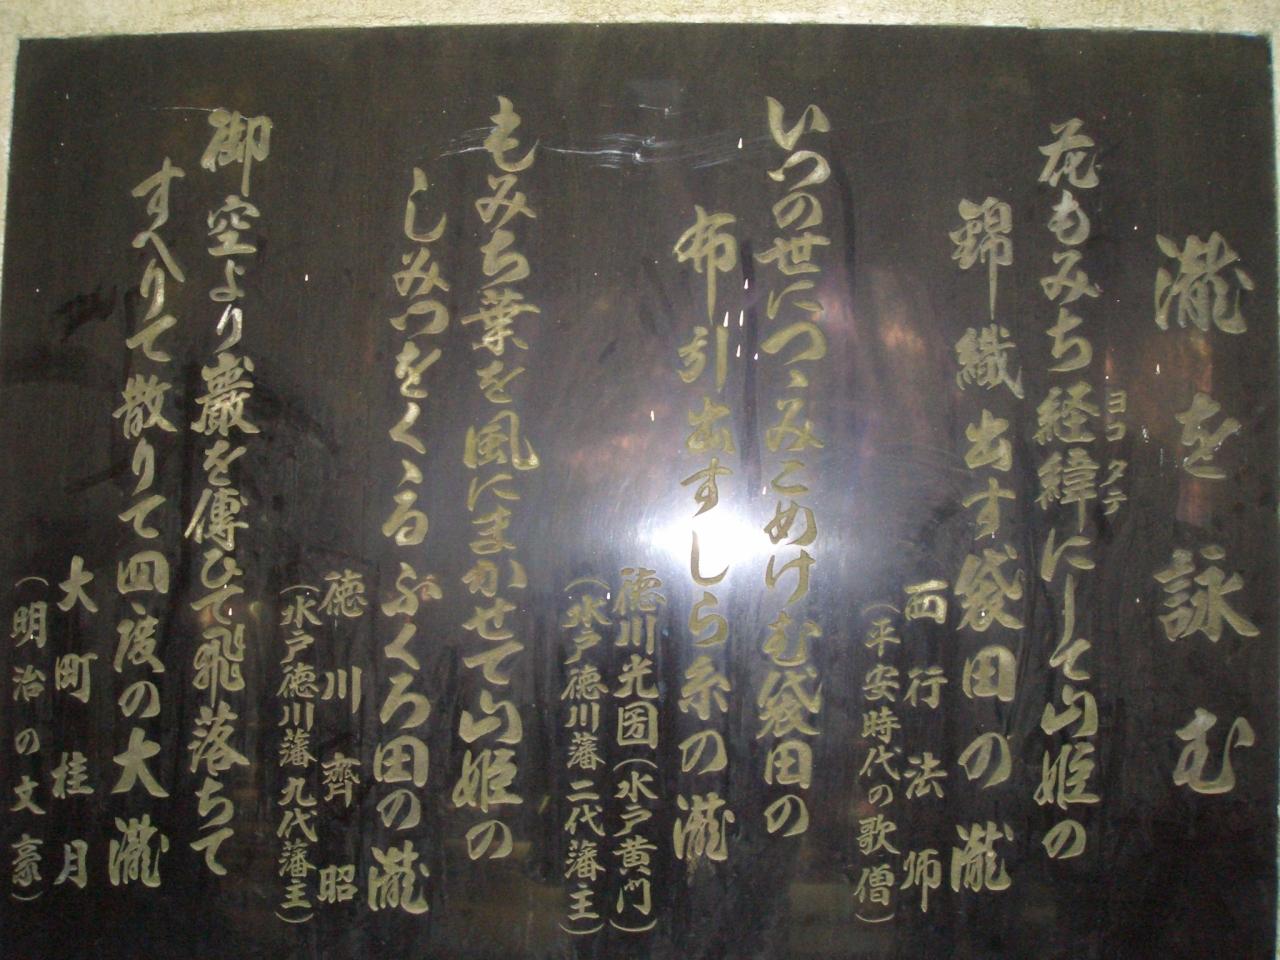 瀧を詠む
花もみち経緯にして山姫の
ヨコタテ
錦織出す袋田の瀧
西行法師
(平安時代の歌僧)
いつの世につゝみこめけむ袋田の
布引出すしら糸の瀧
徳川光圀(水戸黄門)
(水戸徳川藩二代藩主)
もみち葉を風にまかせて山姫の
しみつをくゝるふくろ田の瀧
徳川齊昭
(水戸徳川藩九代藩主)
御空より巌を傳ひて飛落ちて
すへりて散りて四度の大瀧
大町桂月
(明治の文豪)